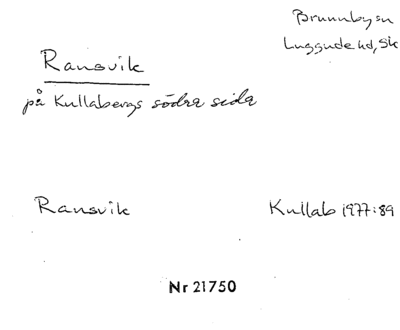 Brunnby sn
Luggude hd, Sk
Ransvik
på Kullabergs södra sida
Ransvik
Kullab 1977:89
Nr 21750